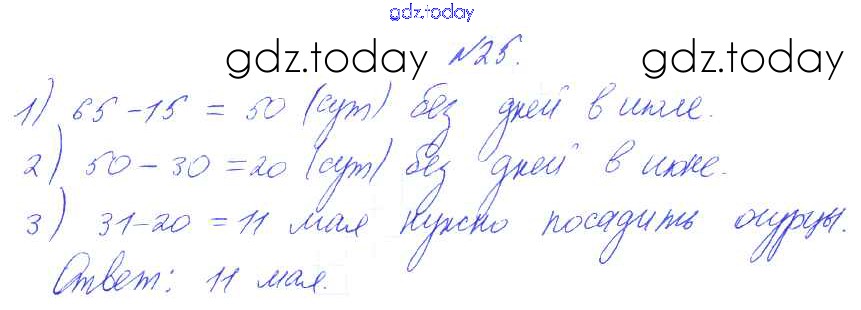 gdz.today
gdz.today №25. gdz.today
1) 65-15 = 50 (сут) без дней в июле.
2) 50-30 =20 (сут) без дней в июне.
3) 31-20 =11 мая нужно посадить огурцы.
Ответ: 11 мая.